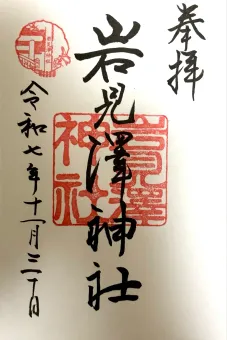 奉拝
岩見澤神社
岩見澤神社
令和七年十一月三十日